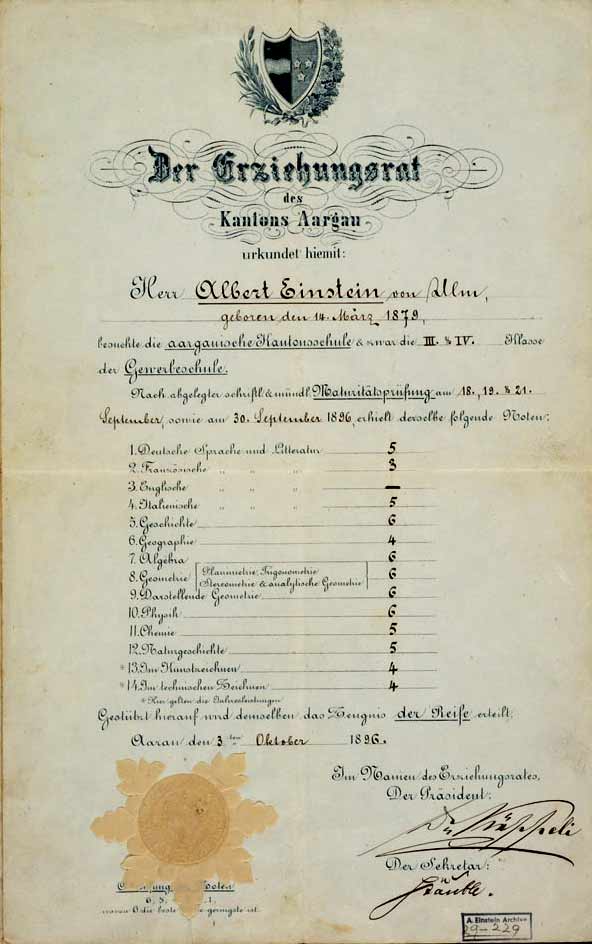 Der Erziehungsrat
des
Kantons Aargau
urkundet hiemit:
Herr Albert Einstein von Ulm,
geboren den 14. März 1879,
besuchte die aargauische Kantonsschule & zwar die III. & IV. Klasse
der Gewerbeschule.
Nach abgelegter schriftl. & mündl. Maturitätsprüfung am 18., 19. & 21.
September, sowie am 30. September 1896, erhielt derselbe folgende Noten:
1. Deutsche Sprache und Litteratur 5
2. Französische " " " 3
3. Englische " " " —
4. Italienische " " " 5
5. Geschichte 6
6. Geographie 4
7. Algebra 6
8. Geometrie [Planimetrie, Trigonometrie 6
Stereometrie & analytische Geometrie]
9. Darstellende Geometrie 6
10. Physik 6
11. Chemie 5
12. Naturgeschichte 5
* 13. Im Kunstzeichnen 4
* 14. Im technischen Zeichnen 4
* Hier gelten die Jahresleistungen
Gestützt hierauf wird demselben das Zeugnis der Reife erteilt.
Aarau den 3ten Oktober 1896.
Im Namen des Erziehungsrates,
Der Präsident:
Dr. Käppeli
Der Sekretär:
Stäuble.
Noten
6, 5, 1.
wovon 6 die beste geringste ist.
A. Einstein Archive
29-229